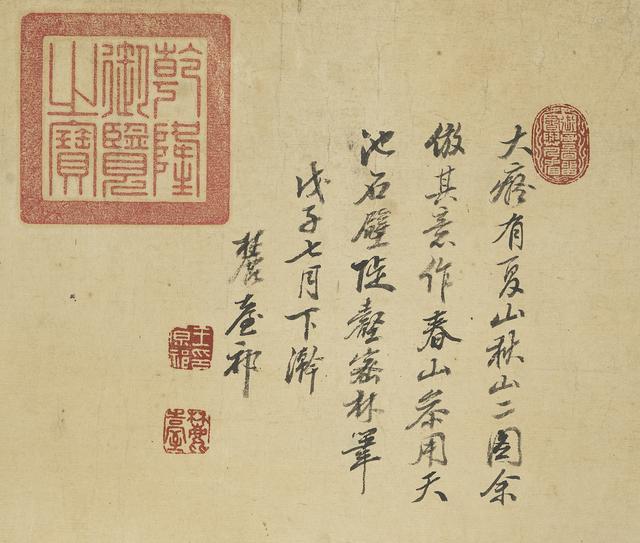 大癡有夏山秋山二圖余
倣其意作春山叅用天
池石壁陡壑密林筆
戊子七月下澣
麓臺祁
乾隆
御覽
之寶
王原祁印
麓臺